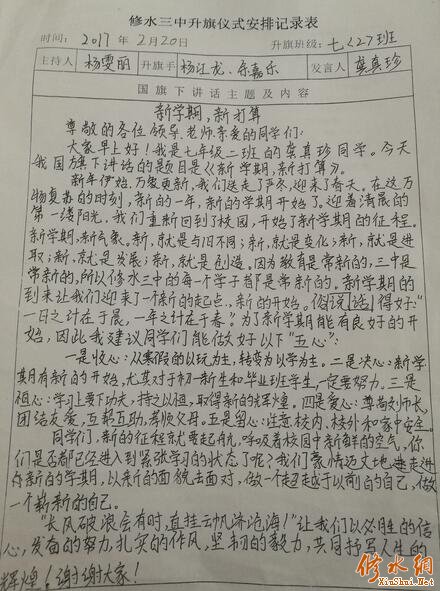 修水三中升旗仪式安排记录表
时间: 2017 年 2月20日 升旗班级: 七<2>班
主持人 杨雯丽 升旗手 杨江龙、余嘉乐 发言人 龚真珍
国旗下讲话主题及内容
新学期,新打算
尊敬的各位领导、老师、亲爱的同学们:
大家早上好!我是七年级二班的龚真珍同学。今天
我国旗下讲话的题目是《新学期,新打算》。
新年伊始,万象更新,我们送走了严冬,迎来了春天。在这万
物复苏的时刻,新的一年,新的学期开始了。迎着清晨的
第一缕阳光,我们重新回到了校园,开始了新学期的征程。
新学期,新气象。新,就是与旧不同;新,就是变化;新,就是进
取;新,就是发展;新,就是创造。因为教育是常新的,三中是
常新的,所以修水三中的每一个学子都是常新的。新学期的
到来让我们迎来了一个新的起点,新的开始。俗说话得好:“
一日之计在于晨,一年之计在于春”。为了新学期能有良好的开
始,因此我建议同学们能做好以下“五心”:
一是收心:从寒假的以玩为主,转变为以学为主。二是决心:新学
期有新的开始,尤其对于初一新生和毕业班学生,一定要努力。三是
恒心:学习上要下功夫,持之以恒,取得新的辉煌。四是爱心:尊尚师长,
团结友爱,互帮互助,孝顺父母。五是留心:注意校内、校外和家中安全。
同学们,新的征程就要起航,呼吸着校园中新鲜的空气,你
们是否都已经进入到紧张学习的状态了呢?我们豪情迈丈地走进
新的新学期,以新的面貌去面对,做一个超越于以前的自己,做
一个崭新的自己。
“长风破浪会有时,直挂云帆济沧海!”让我们以必胜的信
心,发奋的努力,扎实的作风,坚韧的毅力,共同抒写人生的
辉煌!谢谢大家!
修水网
xiushui.net